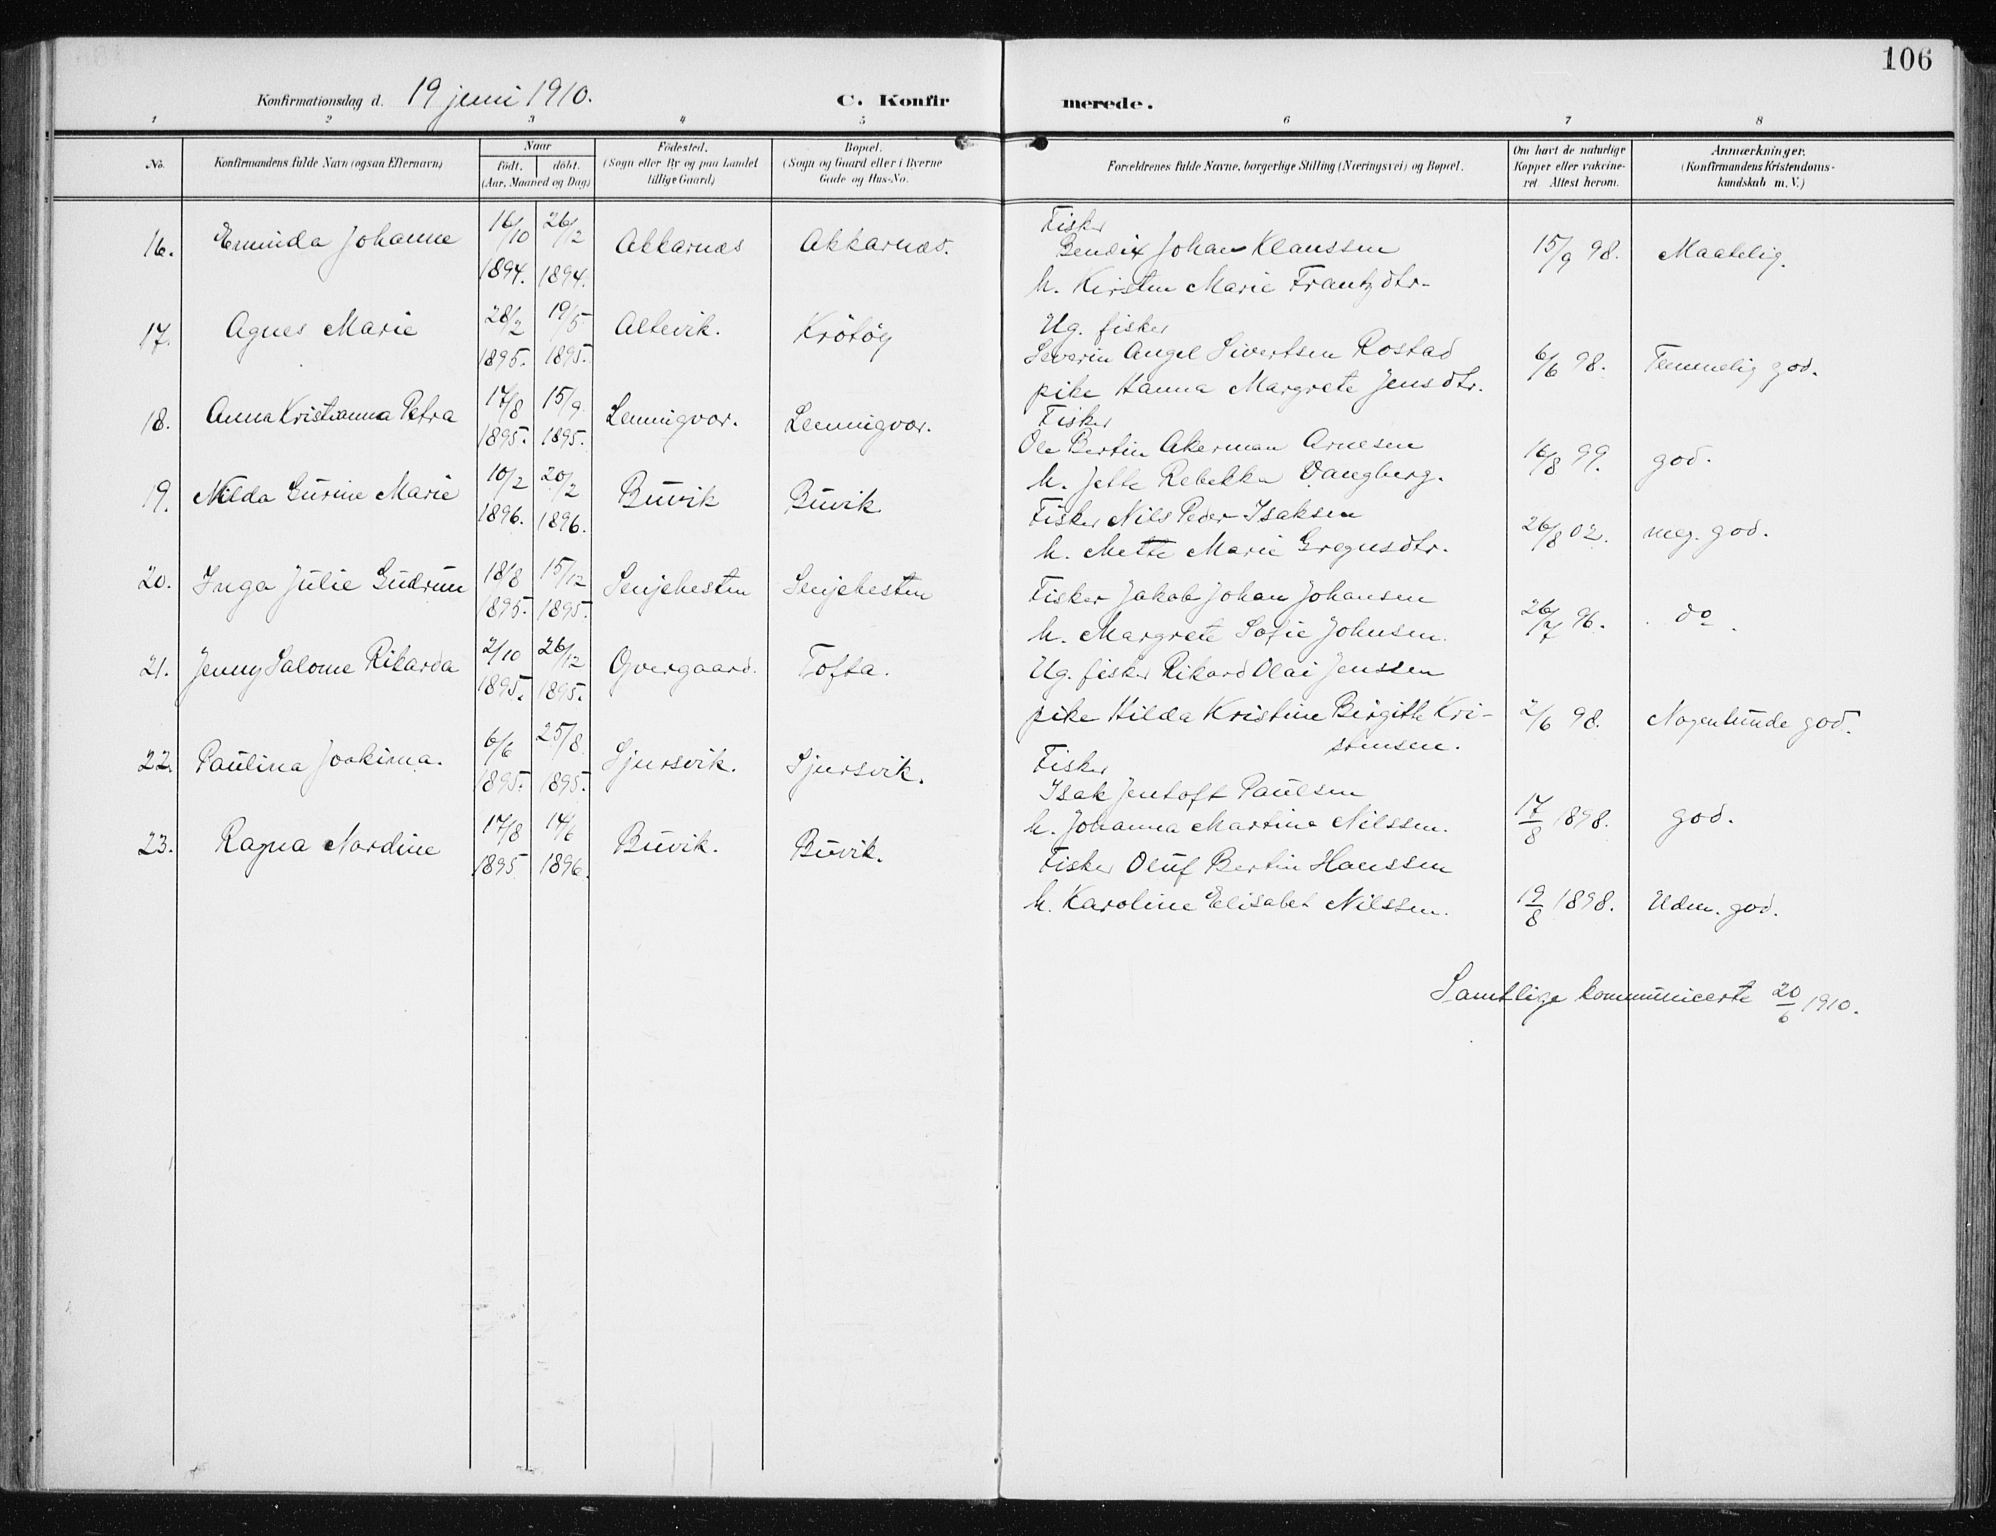 106
Konfirmationsdag d. 19 juni 1910. C. Konfir merede.
1 2 3 4 5 6 7 8
No. Konfirmandens fulde Navn (ogsaa Efternavn) Naar födt. döbt. (Aar, Maaned og Dag) Födested. (Sogn eller By og paa Landet tillige Gaard) Bopæl. (Sogn og Gaard eller i Byerne Gade og Hus-No. Forældrenes fulde Navne, borgerlige Stilling (Næringsvei) og Bopæl. Om havt de naturlige Kopper eller vakcineret. Attest herom. Anmærkninger. (Konfirmandens Kristendomskundskab m. V.)
16. Erminda Johanne 16/10 1894. 26/2 1894. Akkarnæs Akkarnæs.
Fisker
Bendix Johan Klaussen 15/9 98. Maatelig.
h. Kirsten Marie Frantzdtr.
17. Agnes Marie 28/2 1895. 19/5 1895. Altevik. Krötöy
Ug. fisker
Severin Angel Sivertsen Rostad 6/6 98. Temmelig god.
pike Hanna Margrete Jensdtr.
18. Anna Kristianna Petra 17/8 1895. 15/9 1895. Lemmingvær. Lemmingvær.
Fisker
Ole Bertin Akerman Arnesen 16/8 99. god.
h. Jette Rebekka Vangberg.
19. Nilda Gurine Marie 10/2 1896. 20/2 1896. Buvik Buvik
Fisker Nils Peder Isaksen 26/8 02. meg. god.
h. Mette Marie Gregusdtr.
20. Inga Julie Gudrun 18/8 1895. 15/12 1895. Senjehesten Senjehesten
Fisker Jakob Johan Johansen 26/7 96. do.
h. Margrete Sofie Johnsen.
21. Jenny Salome Rikarda 2/10 1895. 26/12 1895. Overgaard. Tofta.
Ug. fisker Rikard Olai Jenssen
pike Hilda Kristine Birgitte Kri- 2/6 98. Nogenlunde god.
stensen.
22. Paulina Joakima. 6/6 1895. 25/8 1895. Sjursvik. Sjursvik.
Fisker
Isak Jentoft Paulsen
h. Johanna Martine Nilssen. 17/8 1898. god.
23. Ragna Nordine 17/8 1895 14/6 1896. Buvik. Buvik.
Fisker Oluf Bertin Hanssen
h. Karoline Elisabet Nilssen. 19/8 1898. Udm. god.
Samtlige kommunicerte 20/6 1910.